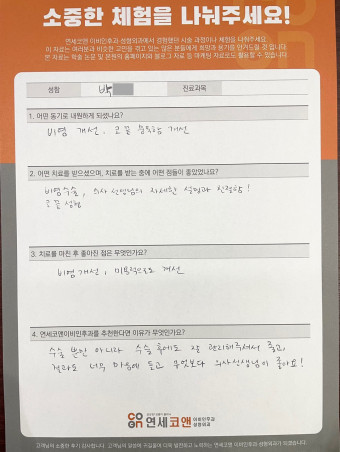 소중한 체험을 나눠주세요!
연세코앤 이비인후과 성형외과에서 경험했던 시술 과정이나 체험을 나눠주세요.
이 자료는 여러분과 비슷한 고민을 겪고 있는 많은 분들에게 희망과 용기를 안겨드릴 것 입니다.
본 자료는 학술 논문 및 본원의 홈페이지와 블로그 자료 등 마케팅 자료로도 활용될 수 있습니다.
성함 박 진료과목
1. 어떤 동기로 내원하게 되셨나요?
비염 개선, 코끝 뭉툭함 개선
2. 어떤 치료를 받으셨으며, 치료를 받는 중에 어떤 점들이 좋았었나요?
비염수술, 의사선생님의 자세한 설명과 친절함!
코끝 성형
3. 치료를 마친 후 좋아진 점은 무엇인가요?
비염개선, 미용적으로도 개선
4. 연세코앤이비인후과를 추천한다면 이유가 무엇인가요?
수술 뿐만 아니라 수술 후에도 잘 관리해주셔서 좋고,
결과도 너무 마음에 들고 무엇보다 의사선생님이 좋아요!
연세코앤 이비인후과 성형외과
고객님의 소중한 후기 감사합니다. 고객님의 질병에 귀 기울여 더욱 발전하고 노력하는 연세코앤 이비인후과 성형외과가 되겠습니다.